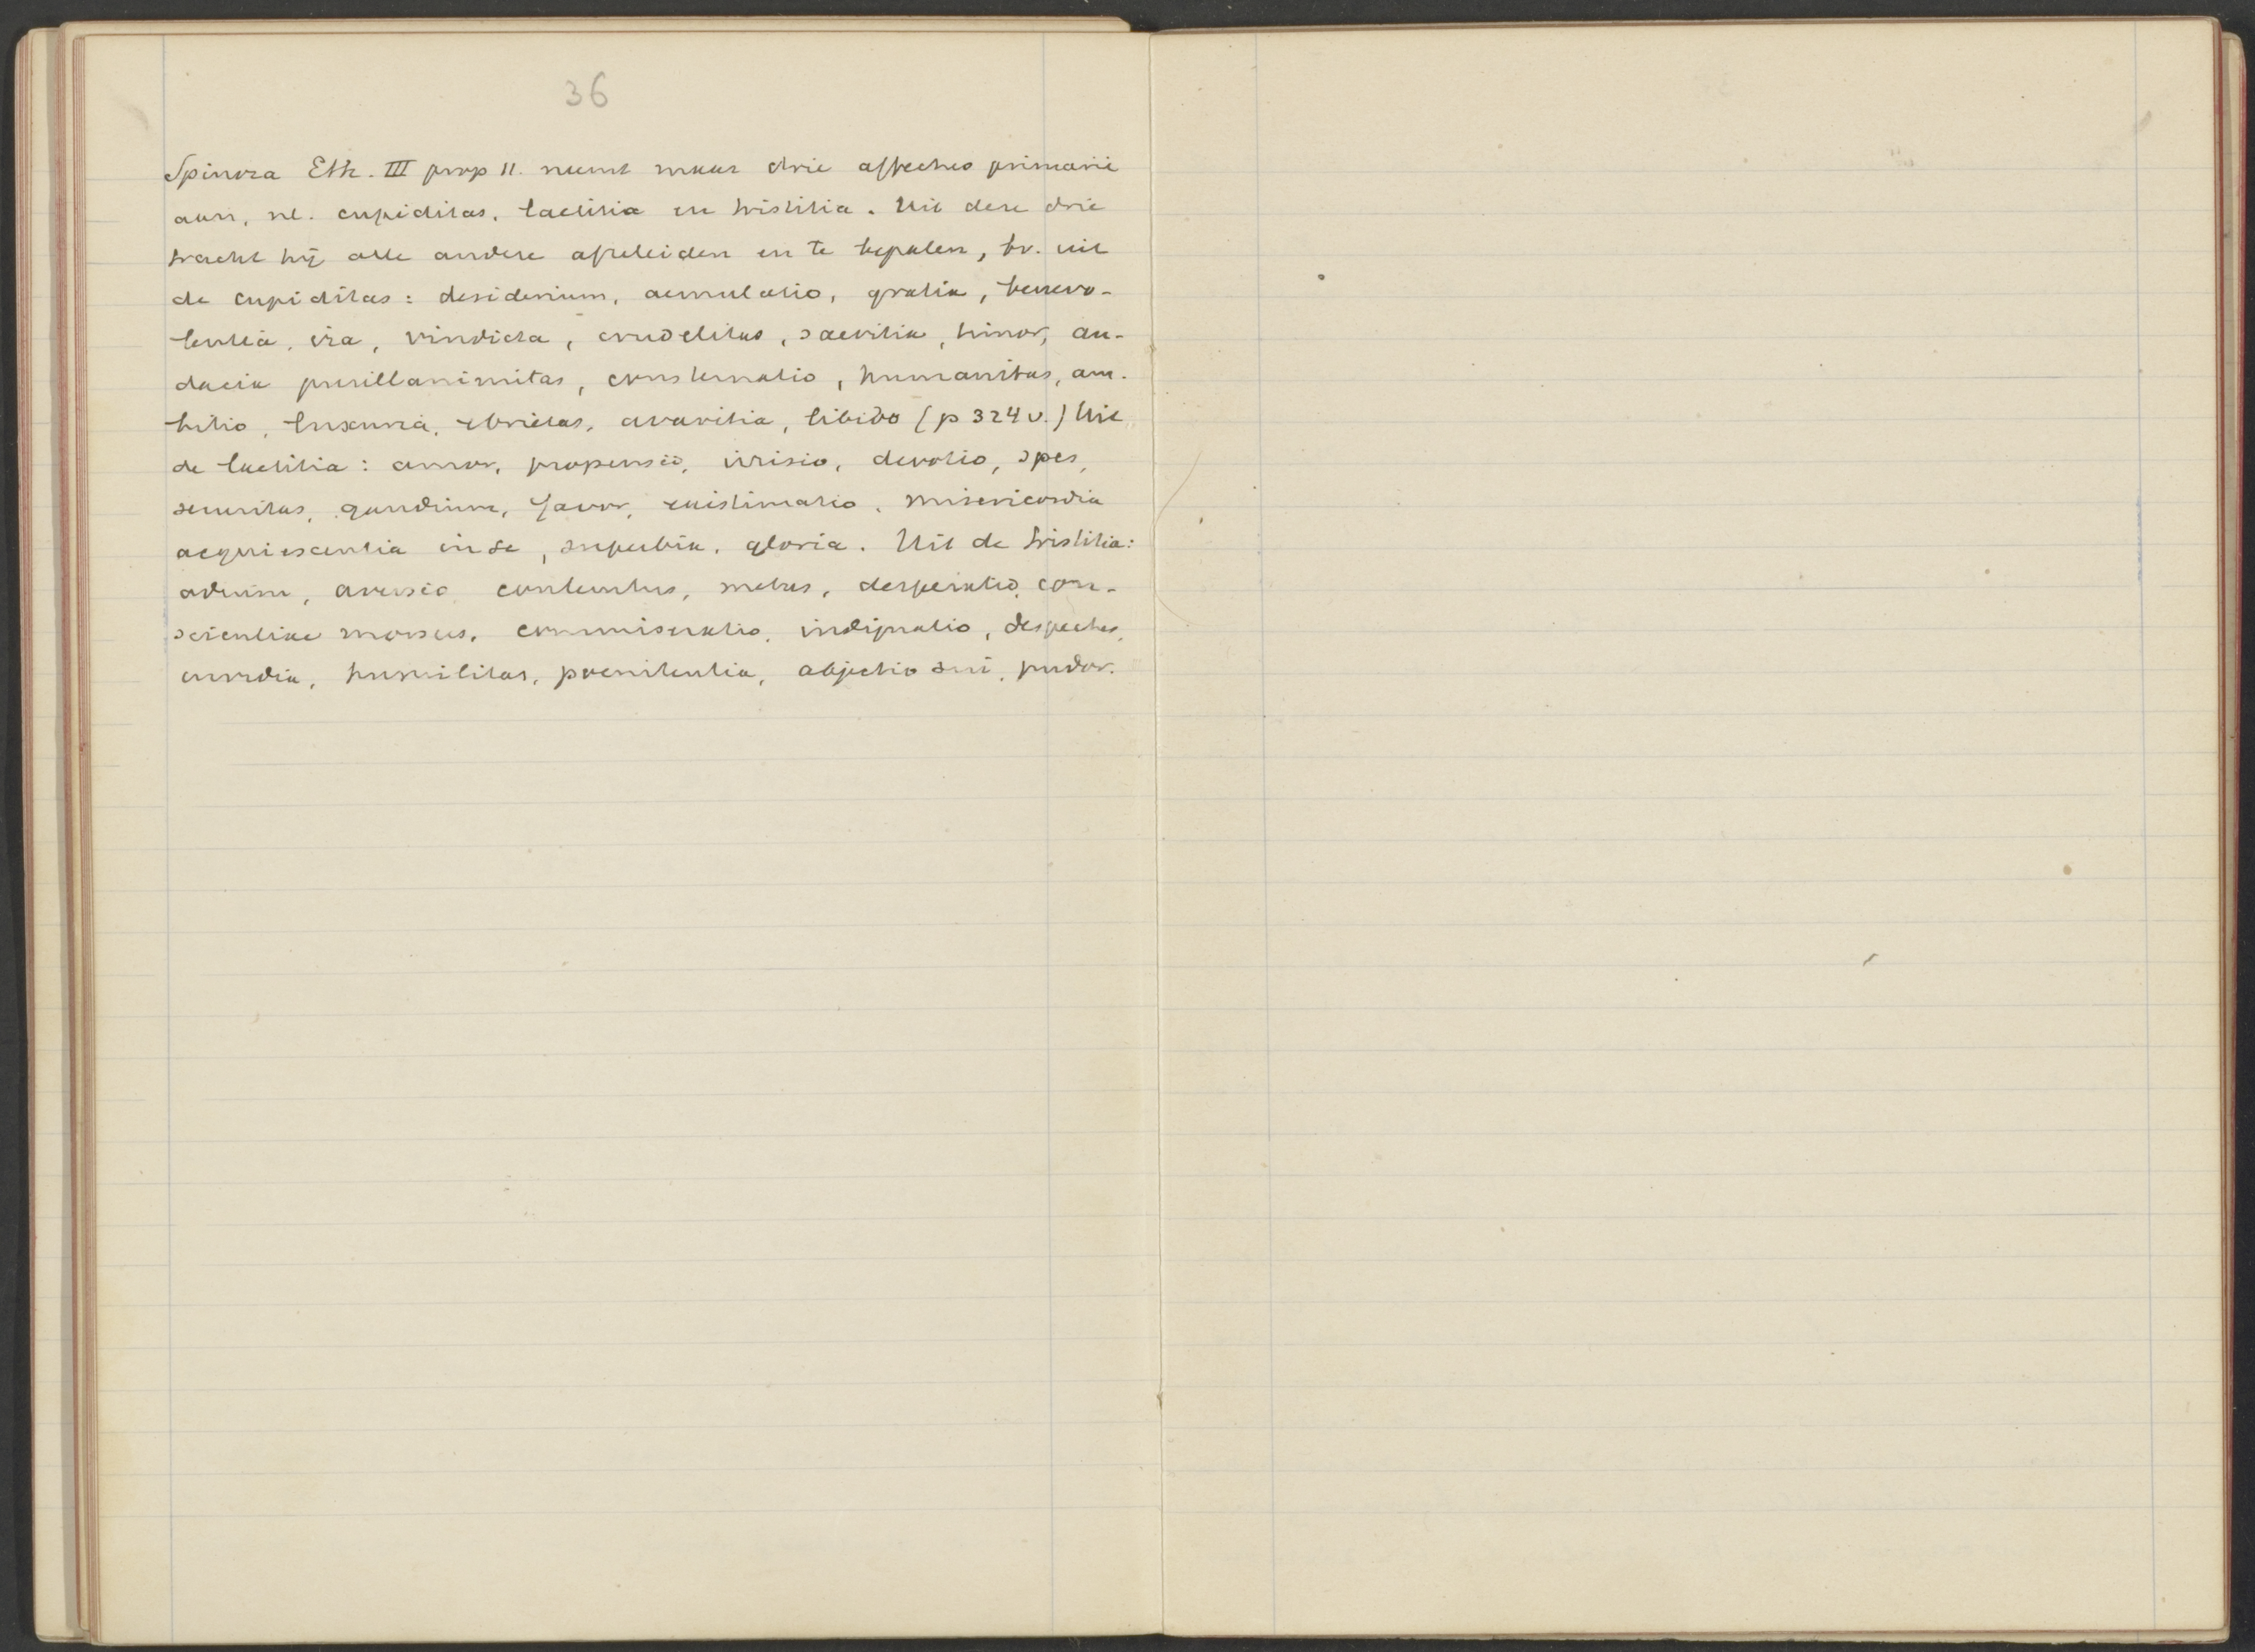 36
Spinoza Eth. III prop 11. neemt maar drie affectus primarii
aan, nl. cupiditas, laetitia en tristitia. Uit deze drie
tracht hij alle andere afteleiden en te bepalen, bv. uit
de cupiditas: desiderium, aemulatio, gratia, benevo-
lentia, ira, vindicta, crudelitas, saevitia, timor, au-
dacia pusillanimitas, consternatio, humanitas, am-
bitio, luxuria, ebrietas, avaritia, libido (p 324 v.) Uit
de laetitia: amor, propensio, irrisio, devotio, spes,
securitas, gaudium, favor, existimatio, misericordia
acquiescentia in se, superbia, gloria. Uit de tristitia:
odium, aversio contemtus, metus, desperatio, con-
scientiae morsus, commiseratio, indignatio, despectus,
invidia, humilitas, poenitentia, abjectio sui, pudor.